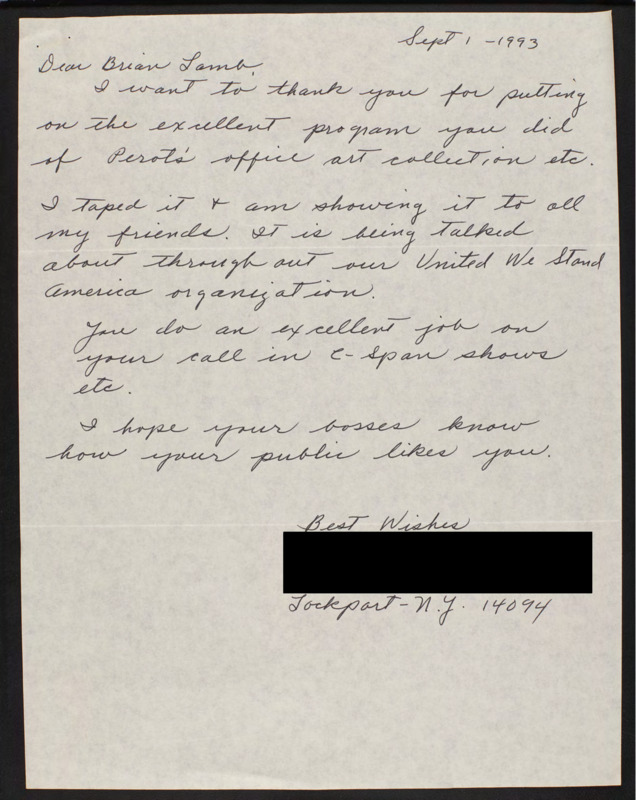 Sept 1 - 1993
Dear Brian Lamb,
I want to thank you for putting
on the excellent program you did
of Perot's office art collection etc.
I taped it + am showing it to all
my friends. It is being talked
about through out our United We Stand
America organization.
You do an excellent job on
your call in C-Span shows
etc.
I hope your bosses know
how your public likes you.
Best Wishes
Lockport - N.Y. 14094